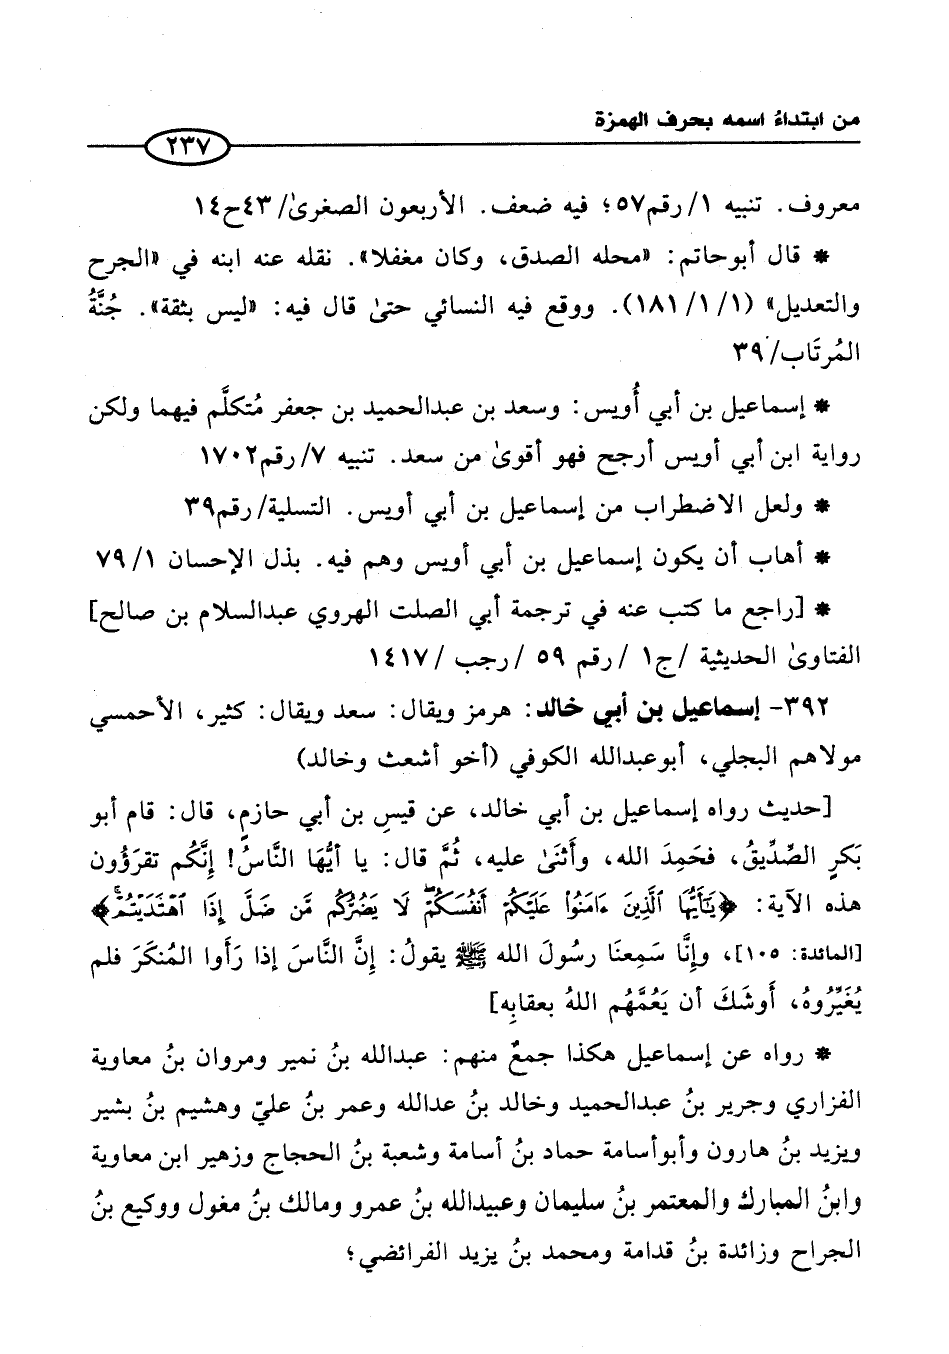 من ابتداءُ اسمه بحرف الهمزة
٢٣٧
معروف. تنبيه ١/رقم٥٧؛ فيه ضعف. الأربعون الصغرىٰ/٤٣ح١٤
* قال أبوحاتم: «محله الصدق، وكان مغفلا». نقله عنه ابنه في «الجرح
والتعديل» (١/١/ ١٨١). ووقع فيه النسائي حتىٰ قال فيه: «ليس بثقة». جُنَّةُ
المُرتَاب/٣٩
* إسماعيل بن أبي أُويس: وسعد بن عبدالحميد بن جعفر مُتكلَّم فيهما ولكن
رواية ابن أبي أويس أرجح فهو أقوىٰ من سعد. تنبيه ٧/رقم١٧٠٢
* ولعل الاضطراب من إسماعيل بن أبي أويس. التسلية/رقم٣٩
* أهاب أن يكون إسماعيل بن أبي أويس وهم فيه. بذل الإحسان ٧٩/١
* [راجع ما كتب عنه في ترجمة أبي الصلت الهروي عبدالسلام بن صالح]
الفتاوىٰ الحديثية /ج١ /رقم ٥٩ /رجب /١٤١٧
٣٩٢- إسماعيل بن أبي خالد: هرمز ويقال: سعد ويقال: كثير، الأحمسي
مولاهم البجلي، أبوعبدالله الكوفي (أخو أشعث وخالد)
[حديث رواه إسماعيل بن أبي خالد، عن قيسِ بن أبي حازمٍ، قال: قام أبو
بَكرٍ الصِّدِّيقُ، فحَمِدَ الله، وأَثنَىٰ عليه، ثُمَّ قال: يا أيُّهَا النَّاسُ! إِنَّكُم تقرَؤُون
هذه الآية: ﴿يَٰٓأَيُّهَا ٱلَّذِينَ ءَامَنُوا۟ عَلَيْكُمْ أَنفُسَكُمْ ۖ لَا يَضُرُّكُم مَّن ضَلَّ إِذَا ٱهْتَدَيْتُمْ ۚ﴾
[المائدة: ١٠٥]، وإِنَّا سَمِعنَا رسُولَ الله ﷺ يقولُ: إِنَّ النَّاسَ إذا رَأَوا المُنكَرَ فلم
يُغَيِّرُوهُ، أَوشَكَ أن يَعُمَّهُم اللهُ بعقابِه]
* رواه عن إسماعيل هكذا جمعٌ منهم: عبدالله بنُ نمير ومروان بنُ معاوية
الفزاري وجرير بنُ عبدالحميد وخالد بنُ عدالله وعمر بنُ عليّ وهشيم بنُ بشير
ويزيد بنُ هارون وأبوأسامة حماد بنُ أسامة وشعبة بنُ الحجاج وزهير ابن معاوية
وابنُ المبارك والمعتمر بنُ سليمان وعبيدالله بنُ عمرو ومالك بنُ مغول ووكيع بنُ
الجراح وزائدة بنُ قدامة ومحمد بنُ يزيد الفرائضي؛